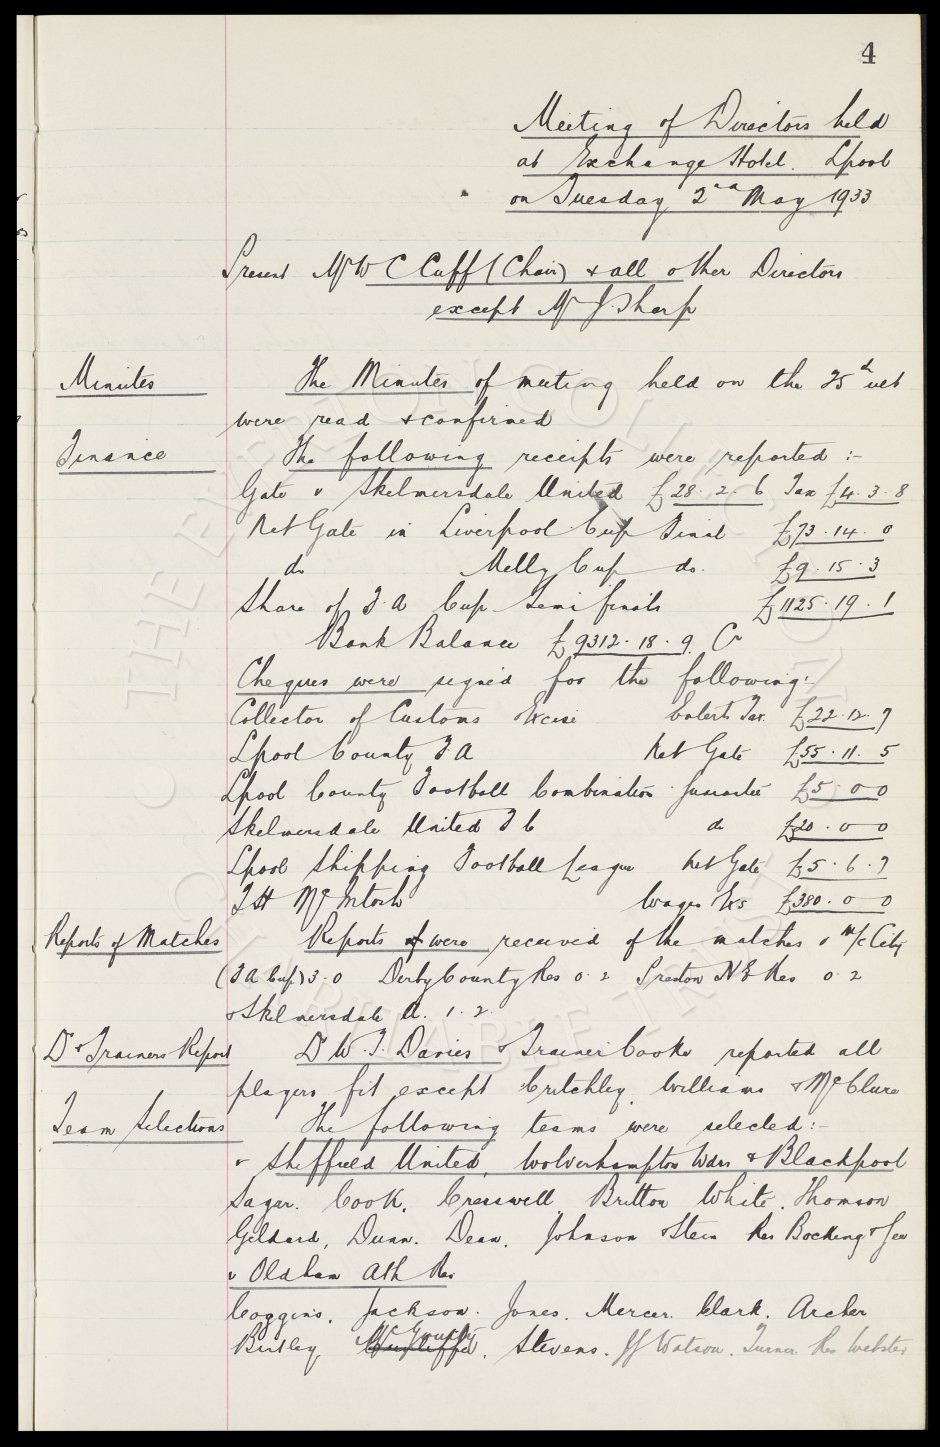 4
Meeting of Directors held
at Exchange Hotel. Lpool
on Tuesday 2nd May 1933
Present Mr W C Cuff (Chair) & all other Directors
except Mr J. Sharp
Minutes The Minutes of meeting held on the 25th ult
were read & confirmed
Finance The following receipts were reported :-
Gate v Skelmersdale United £28. 2. 6 Tax £4. 3. 8
Net Gate in Liverpool Cup Final £73. 14. 0
do Melly Cup do. £9. 15. 3
Share of F.A Cup Semi finals £1125. 19. 1
Bank Balance £9312. 18. 9. Cr
Cheques were signed for the following:
Collector of Customs Excise Entert Tax. £22. 12. 7
Lpool County F.A Net Gate £55. 11. 5
Lpool County Football Combination guarantee £5 0 0
Skelmersdale United F C do £20. 0 0
Lpool Shipping Football League Net Gate £5. 6. 7
T H McIntosh Wages Exs £380. 0 0
Reports of Matches Reports of were received of the matches v M/c City
(F A Cup) 3-0 Derby County Res 0. 2 Preston N E Res 0. 2
& Skelmersdale U. 1. 2.
Dr & Trainers Report Dr W. F. Davies & Trainer Cooke reported all
players fit except Critchley, Williams & McClure
Team Selections The following teams were selected :-
v Sheffield United, Wolverhampton Wdrs & Blackpool
Sagar. Cook, Cresswell, Britton White, Thomson
Geldard, Dunn. Dean, Johnson & Stein Res Bocking & Gee
v Oldham Ath Res
Coggins, Jackson. Jones. Mercer. Clark. Archer
Birtley McGourty Cunliffe, Stevens. J Watson. Turner Res Webster
© THE EVERTON COLLECTION
CHARITABLE TRUST